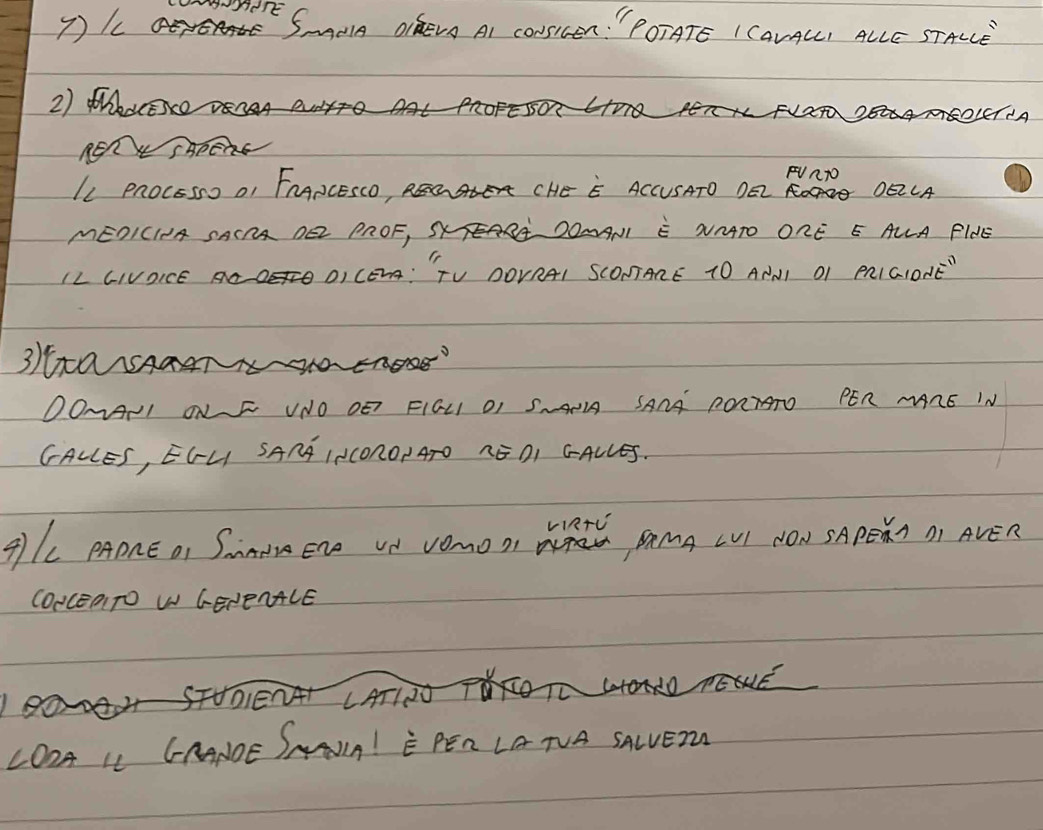 COMANDANTE
7) IL GENERALE SMANIA DICEVA AI CONSIGER: "POTATE I CAVALLI ALLE STALLE"
2) FRANCESCO VERRA PUNITO DAL PROFESSOR LIVIO PER IL FURTO DELLA MEDICINA
PER IL SAPERE
FURTO
IL PROCESSO DI FRANCESCO, CHE È ACCUSATO DEL DELLA
MEDICINA SACRA DEL PROF, DOMANI È DURATO ORE E ALLA FINE
IL GIUDICE HA DETTO DICEVA: "TU DOVRAI SCONTARE 10 ANNI DI PRIGIONE"
3)
DOMANI UNO DEI FIGLI DI SMANIA SARÁ PORTATO PER MARE IN
GALLES, EGLI SARÁ INCORONATO RE DI GALLES.
VIRTÚ
4) IL PADRE DI SMANIA ERA UN UOMO DI , MA LUI NON SAPEVA DI AVER
CONCEPITO UN GENERALE
STUDIERAI LATINO TUTTO IL GIORNO PECHÉ
LODA IL GRANDE SMANIA! È PER LA TUA SALVEZZA